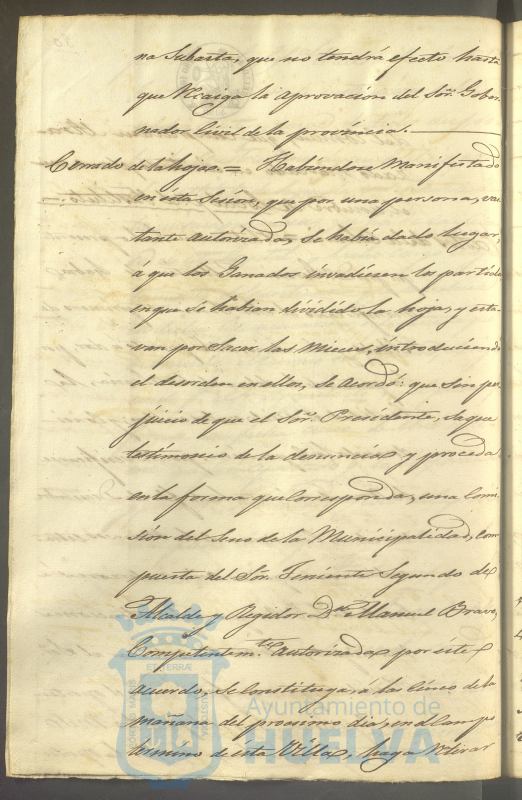 na Subasta, que no tendrá efecto hasta
que Recaiga la aprovacion del Sõr. Gober
nador Civil de la provincia.
Cerrado de la hoja. = Habiendose Manifestado
en este Señor, que por una persona, vas
tante autorizada, se habia dado lugar,
á que los Ganados invadiesen los partidos
en que se habian dividido la hoja, y esta
van por Sacar las Mieses, introduciendo
el desorden en ellos, se acordó: que sin per
juicio de que el Sor. Presidente, saque
testimonio de la denuncia y proceda
en la forma que Corresponda, una Comi
sión del Seno de la Municipalidad, Com
puesta del Sõr. Teniente Segundo de
Alcalde y Regidor Dn. Manuel Bravo,
Competentemte. autorizada por este
acuerdo, se constituya á las Cinco de la
mañana del procsimo dia, en el Campo
termino de esta Villa, haga Retirar
Ayuntamiento de
HUELVA